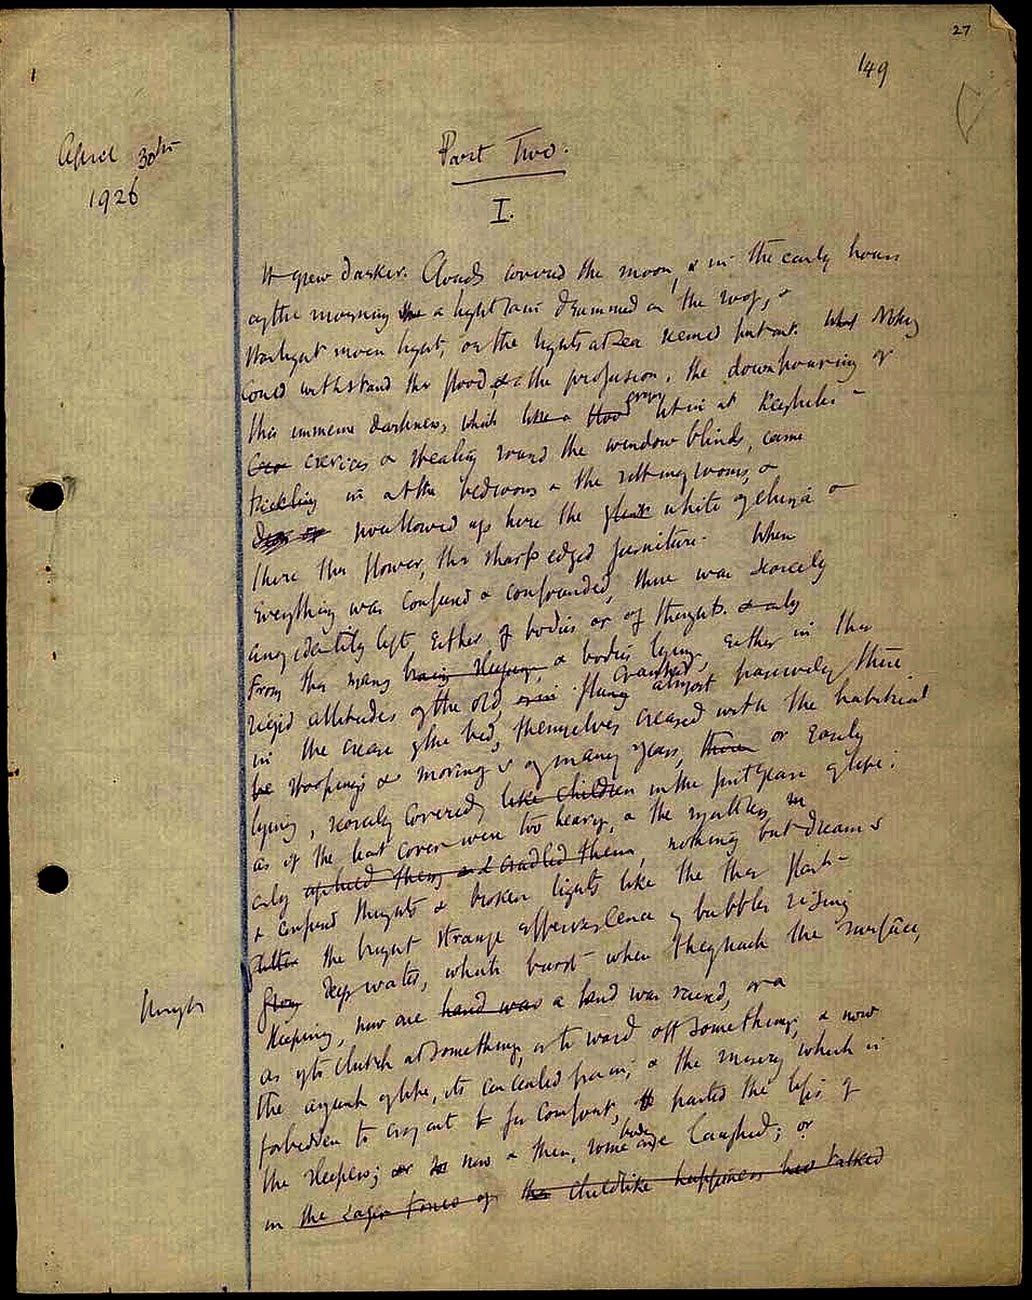 27
149
April 30th
1926
Part Two.
I.
It grew darker. Clouds covered the moon, & in the early hours
of the morning the a light rain drummed on the roof, &
starlight moon light, or the lights at sea seemed put out. what Nothing
could withstand the flood, the profusion, the downpouring of
this immense darkness, which like a flood let in at keyholes &
crevices & stealing round the window blinds, came
trickling in at the bedrooms & the sitting rooms, &
swallowed up here the white of china &
there the flower, the sharp edged furniture. When
everything was confused & confounded, there was scarcely
any identity left, either of bodies or of thoughts. & only
From the many brains sleeping, & bodies lying, either in the
rigid attitudes of the old, flung almost passively there
in the crease of the bed, themselves creased with the habitual
stoopings & movings of many years, or easily
lying, scarcely covered, like children in the first years of life:
as if the least cover were too heavy, & the mattress
only upheld them and cradled them, nothing but dreams
& confused thoughts & broken lights like the
the bright strange effervescence of bubbles rising
from deep water, which burst when they reach the surface,
now one hand was a hand was raised, or a
as if to clutch at something, or to ward off something, & now
the anguish of life, its concealed pain, & the misery which is
forbidden to cry out for comfort, parted the lips of
the sleepers; or now & then, some body one laughed; or
in the eager tones of the childlike happiness had talked